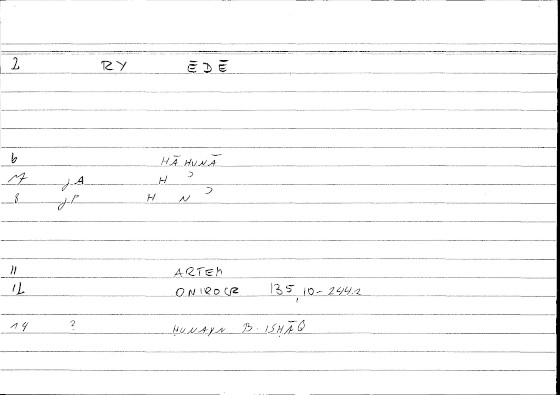 2 RY ĒDĒ
6 HĀHUNĀ
jA H ɔ
8 jP H N ɔ
11 ARTEM
12 ONIROCR 135,10-244.2
14 ? HUNAYN B. ISḤĀQ